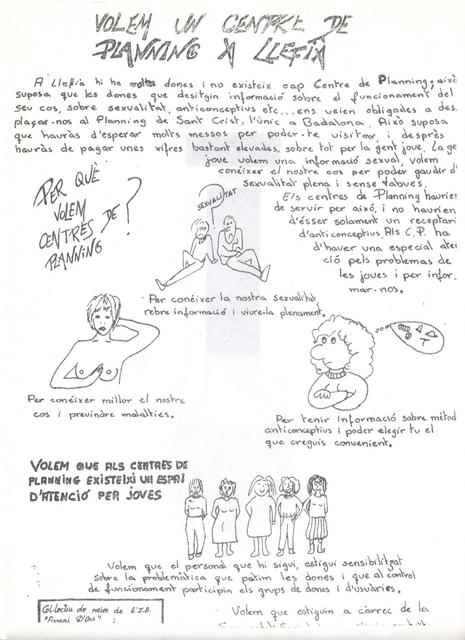 VOLEM UN CENTRE DE
PLANNING A LLEFIÀ
A Llefià hi ha moltes dones i no existeix cap Centre de Planning, això
suposa que les dones que desitgin informació sobre el funcionament del
seu cos, sobre sexualitat, anticonceptius etc... ens veien obligades a des.
plaçar-nos al Planning de Sant Crist, l'únic a Badalona. Això suposa
que hauràs d'esperar molts messos per poder-te visitar i després
hauràs de pagar unes xifres bastant elevades, sobre tot per la gent jove. La ge
joue volem una informació sexual, volem
conéixer el nostre cos per poder gaudir d'
sexualitat plena i sense tabues.
Els centres de Planning haurien
de servir per això, i no haurien
d'ésser solament un receptari
d'anticonceptius. Als C.P. ha
d'haver una especial aten
ció pels problemas de
les joves i per infor
mar-nos.
PER QUÈ
VOLEM
CENTRES DE
PLANNING
?
SEXUALITAT
Per conéixer la nostra sexualitat
rebre informació i viure-la plenament.
Per conéixer millor el nostre
cos i previndre malalties.
Per tenir informació sobre mètod
anticonceptius i poder elegir tu el
que creguis convenient.
VOLEM QUE ALS CENTRES DE
PLANNING EXISTEIXI UN ESPAI
D'ATENCIÓ PER JOVES
Volem que el personal que hi sigui, estigui sensibilitzat
sobre la problemàtica que patim les dones i que al control
de funcionament participin els grups de dones i d'usuàries.
Col·lectiu de noies de l'I.B.
Volem que estiguin a càrrec de la